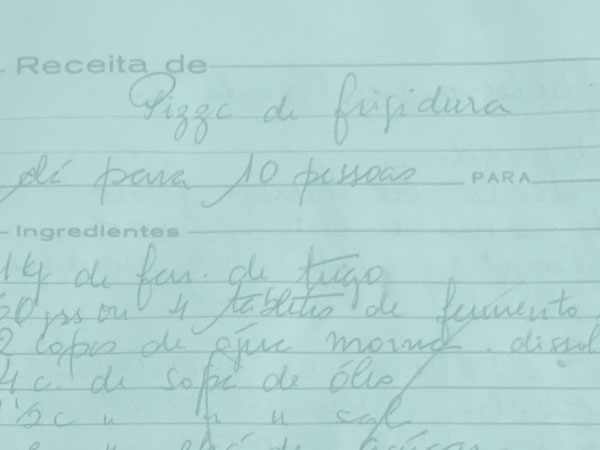 Receita de
Pizza de frigidura
dá para 10 pessoas PARA
Ingredientes
1 Kg de far. de trigo
60 grs ou 4 tabletes de fermento
2 copos de água morna. dissol
4 c. de sopa de óleo
1/2 c " " " sal
" chá de açúcar